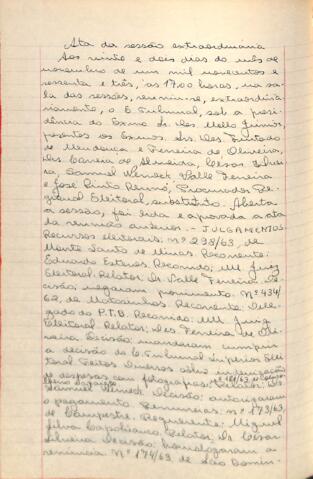 Ata da sessão extraordinaria
Aos vinte e dois dias do mês de
novembro de um mil novecentos e
sessenta e três, às 17,00 horas, na sa-
la das sessões, reuniu-se, extraordina-
riamente, o E. Tribunal, sob a presi-
dência do Exmo. Sr. Des. Mello Junior,
presentes os Exmos. Srs. Des. Furtado
de Mendonça e Ferreira de Oliveira,
Drs. Correia de Almeida, Cesar Silvei-
ra, Samuel Werneck, Valle Ferreira
e José Pinto Renó, Procurador Re-
gional Eleitoral, substituto. Aberta
a sessão, foi lida e aprovada a ata
da reunião anterior. - JULGAMENTOS:
Recursos eleitorais: nº 298/63, de
Monte Santo de Minas. Recorrente:
Eduardo Recorrido: MM Juiz
Eleitoral. Relator: Dr. Valle Ferreira. De-
cisão: negaram provimento. Nº 434/
62, de Matosinhos. Recorrente: Dele-
gado do P.T.B. Recorrido: MM. Juiz
Eleitoral. Relator: Des. Ferreira de Oli-
veira. Decisão: mandaram cumprir
a decisão do E. Tribunal Superior Elei-
toral. Feitos Diversos sobre indenização
de despesas com fotografias: nº 181/63, de
Relator: Dr.
Samuel Werneck. Decisão: autorizaram
o pagamento. Renuncias: nº 173/63,
de Campestre. Requerente: Miguel
Silva Capolianco. Relator: Dr. Cesar
Silveira. Decisão: homologaram a
renúncia. Nº 174/63, de São Domin-